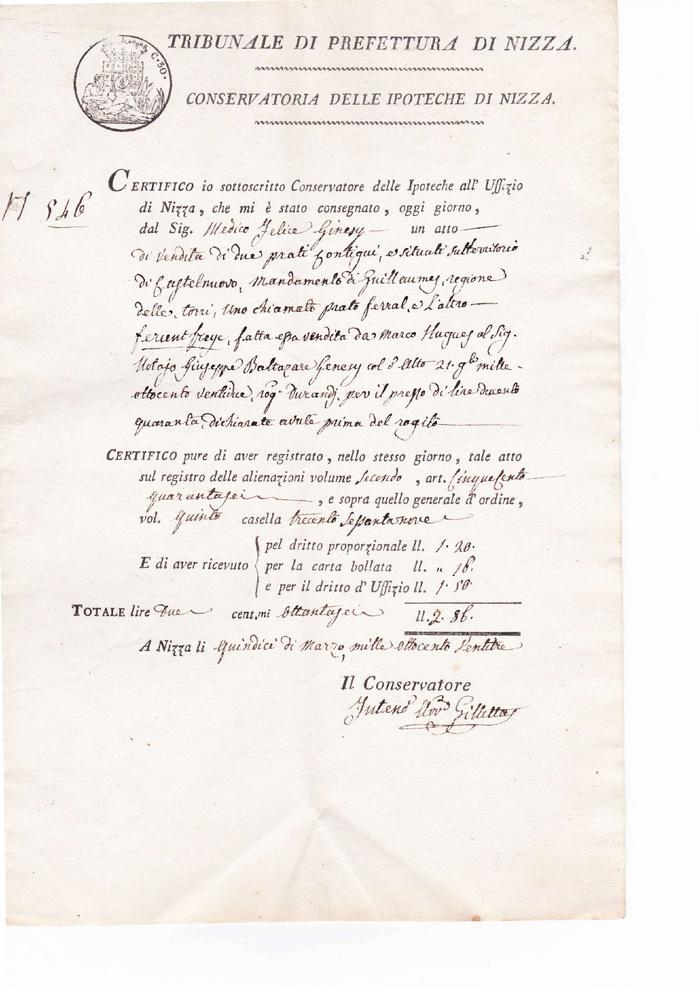 C. 30.
TRIBUNALE DI PREFETTURA DI NIZZA.
CONSERVATORIA DELLE IPOTECHE DI NIZZA.
N 546
CERTIFICO io sottoscritto Conservatore delle Ipoteche all' Uffizio
di Nizza, che mi è stato consegnato, oggi giorno,
dal Sig. Medico Felice Ginesy un atto
di vendita di due prati contigui, e situati sul territorio
di Castelnuovo, Mandamento di Guillaumes, regione
delle torri, uno chiamato prato ferral, e l'altro
, fatta essa vendita da Marco Hugues al Sig.
Notajo Giuseppe Baltazare Genesy col 21. mille
ottocento ventidue, rog. Durandj, per il prezzo di lire ducento
quaranta, dichiarate avute prima del rogito
CERTIFICO pure di aver registrato, nello stesso giorno, tale atto
sul registro delle alienazioni volume secondo, art. Cinquecento
quarantasei, e sopra quello generale d'ordine,
vol. quinto casella trecento sessantanove
E di aver ricevuto
pel dritto proporzionale ll. 1. 20.
per la carta bollata ll. „ 16.
e per il dritto d' Uffizio ll. 1. 50
TOTALE lire Due cent.mi Ottantasei ll. 2. 86.
A Nizza li quindici di Marzo, mille ottocento ventitre
Il Conservatore
Gilletta